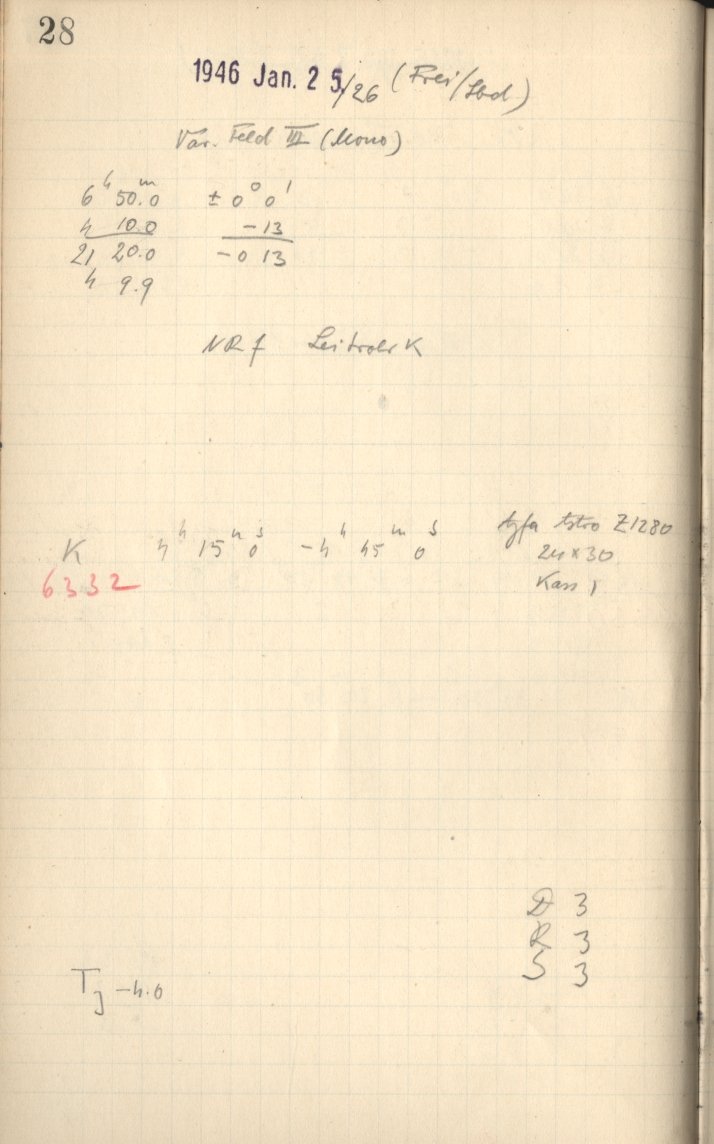 28
1946 Jan. 25/26 (Frei/Sbd)
Var. Feld III (Mono)
6ʰ 50.ᵐ0 ± 0° 0'
4 10.0 -13
21 20.0 -0 13
4 9.9
NR f Leitrohr K
K 4ʰ 15ᵐ 0ˢ -4ʰ 45ᵐ 0ˢ Agfa Astro Z1280
6332 24×30
Kass 1
D 3
R 3
S 3
T -4.0